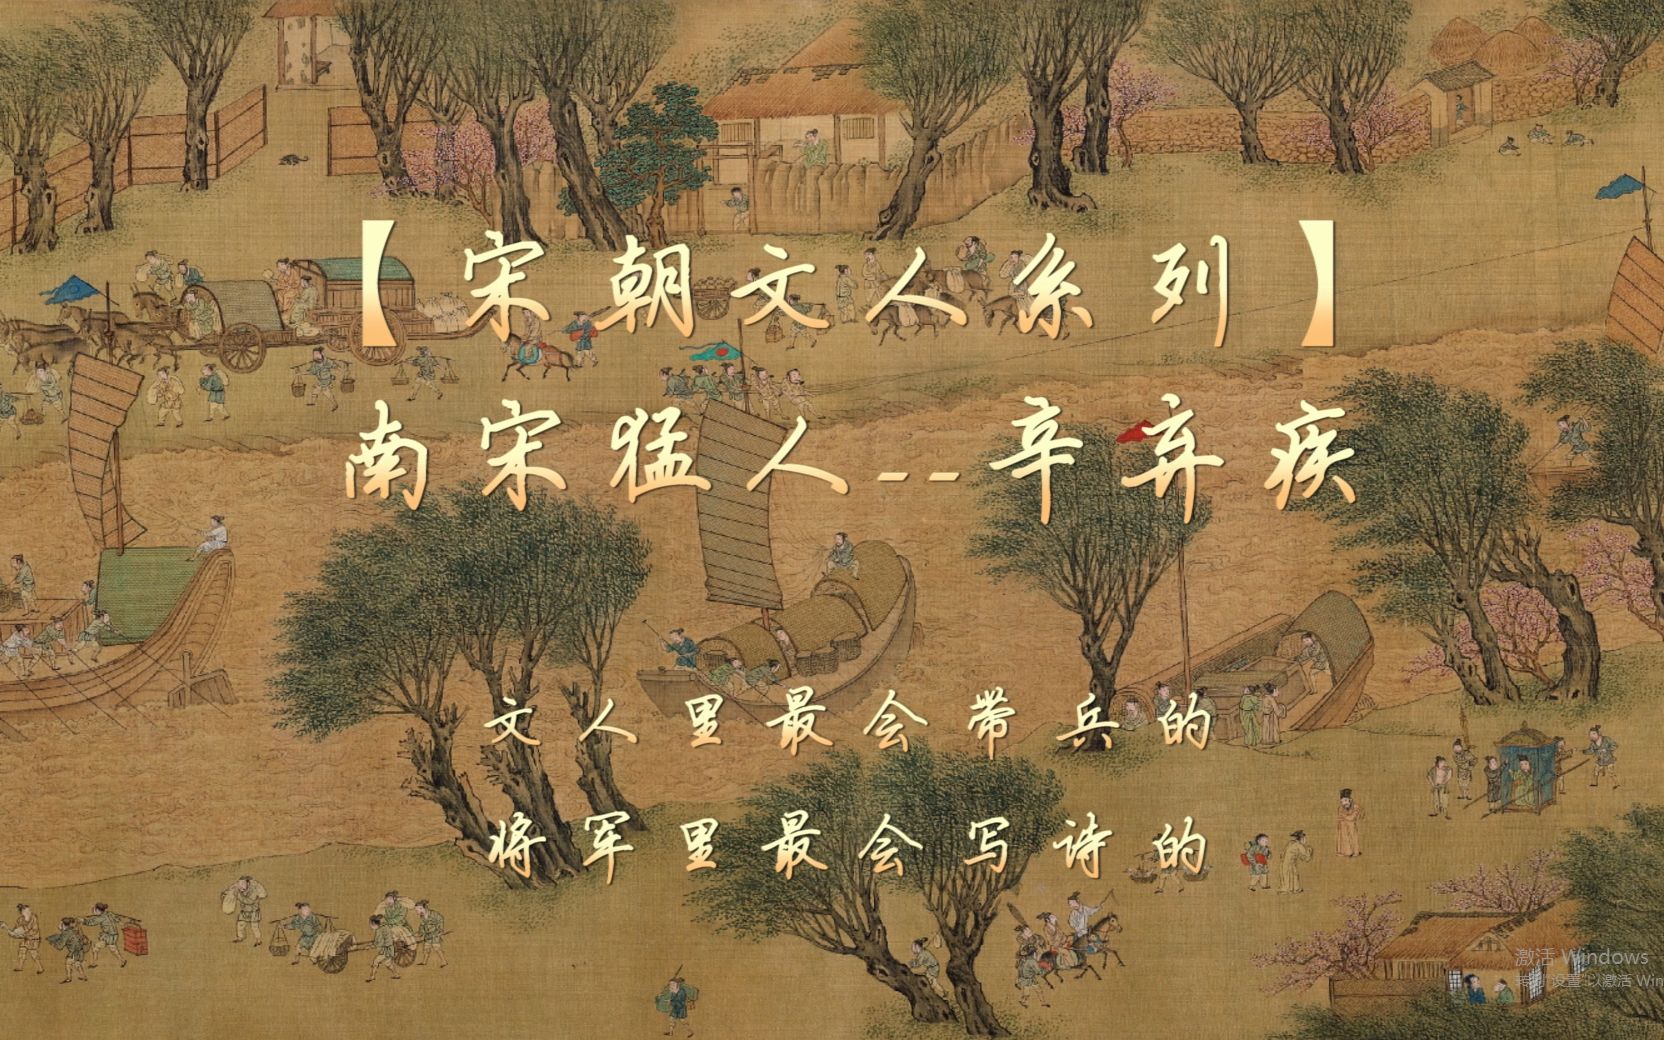 【宋朝文人系列】
南宋猛人--辛弃疾
文人里最会带兵的
将军里最会写诗的
激活 Windows
转到"设置"以激活 Win